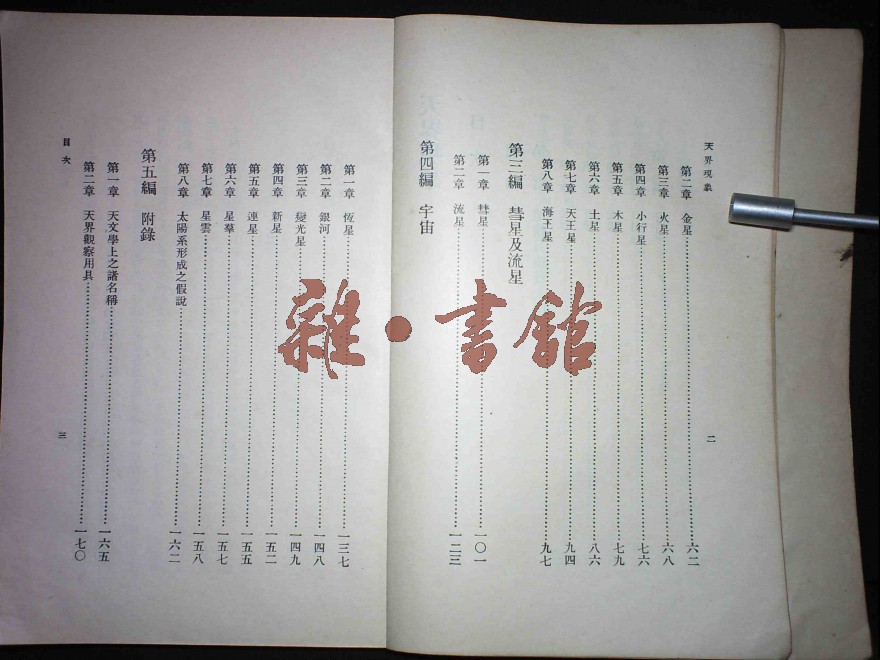 天界現象
第二章 金星 六二
第三章 火星 六八
第四章 小行星 七六
第五章 木星 七九
第六章 土星 八六
第七章 天王星 九四
第八章 海王星 九七
第三編 彗星及流星
第一章 彗星 一〇一
第二章 流星 一二三
第四編 宇宙
二
第一章 恆星 一三七
第二章 銀河 一四八
第三章 變光星 一四九
第四章 新星 一五二
第五章 連星 一五五
第六章 星羣 一五七
第七章 星雲 一五八
第八章 太陽系形成之假說 一六二
第五編 附錄
第一章 天文學上之諸名稱 一六五
第二章 天界觀察用具 一七〇
目次
三
雜·書館